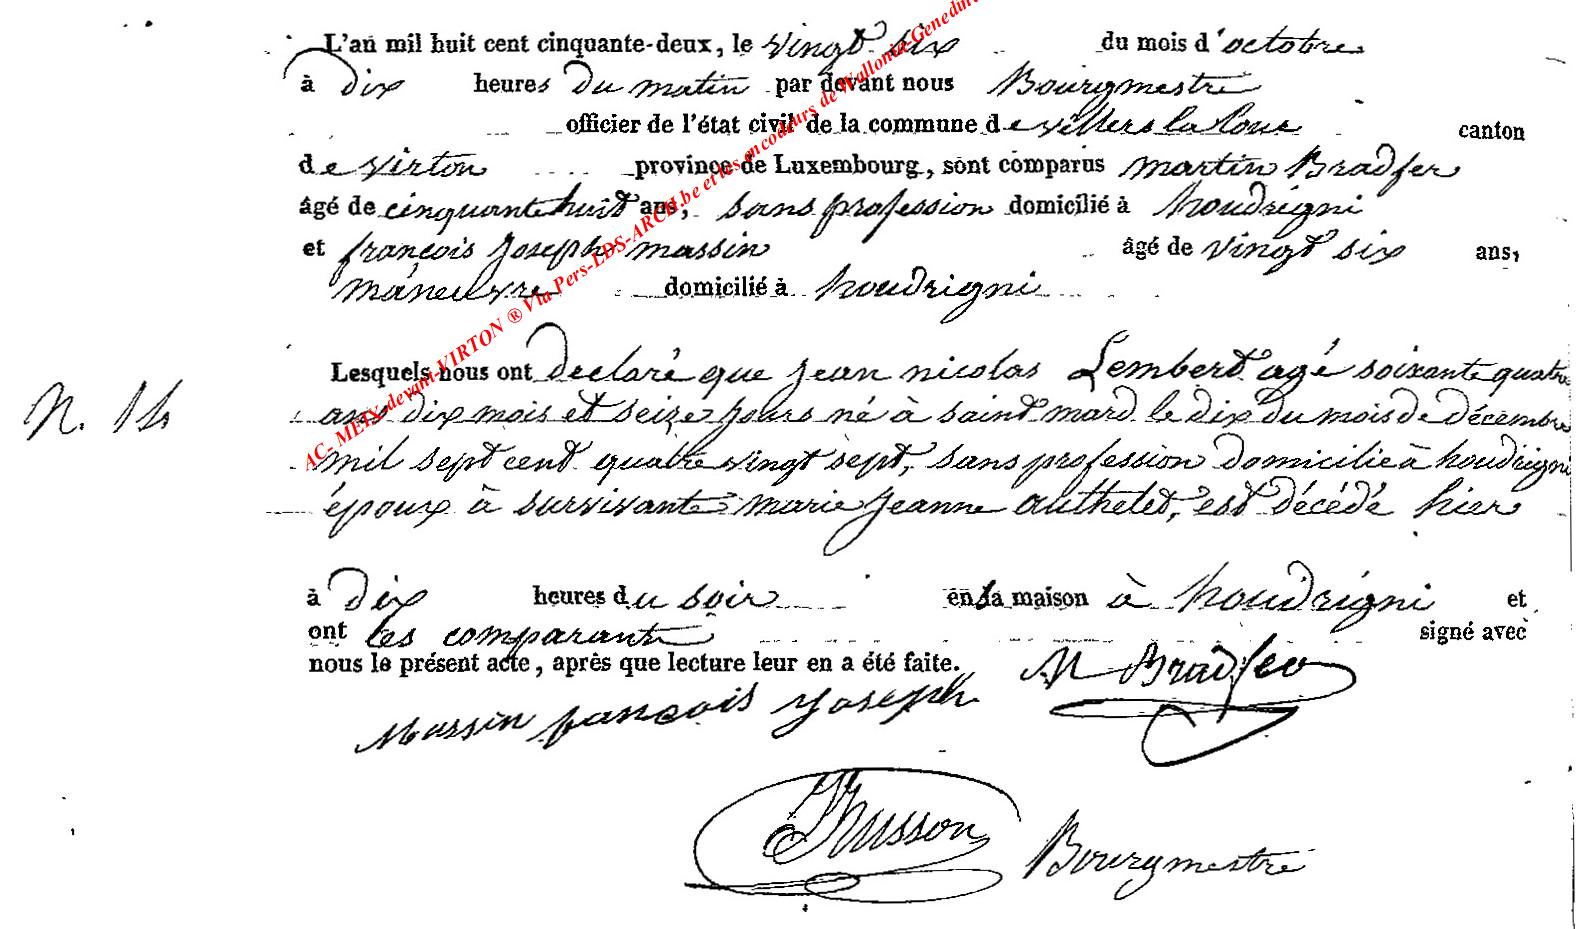 L'an mil huit cent cinquante-deux, le vingt six du mois d'octobre
à dix heures du matin par devant nous Bourgmestre
officier de l'état civil de la commune de villers la loue canton
de virton province de Luxembourg, sont comparus martin Bradfer
âgé de cinquante huit ans, sans profession domicilié à houdrigni
et françois Joseph massin âgé de vingt six ans,
manœuvre domicilié à houdrigni
Lesquels nous ont declaré que jean nicolas Lembert agé soixante quatre
N. 14
ans dix mois et seize jours né à saint mard le dix du mois de décembre
mil sept cent quatre vingt sept, sans profession domicilié à houdrigni
époux à survivante marie jeanne authelet, est décédé hier
à dix heures du soir en sa maison à houdrigni et
ont les comparants signé avec
nous le présent acte, après que lecture leur en a été faite.
M Bradfer
Massin françois Joseph
Husson Bourgmestre
AC- METX-devant-VIRTON ® Via Pers-LDS-ARCH.be et les encodeurs de Wallonie Genedinfo